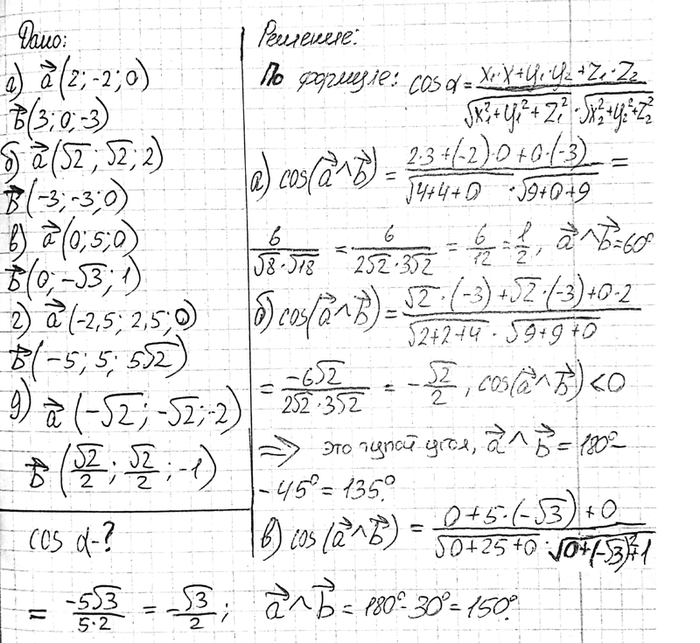 Дано:
а) a⃗ (2; -2; 0)
b⃗ (3; 0; -3)
б) a⃗ (√2; √2; 2)
b⃗ (-3; -3; 0)
в) a⃗ (0; 5; 0)
b⃗ (0; -√3; 1)
г) a⃗ (-2,5; 2,5; 0)
b⃗ (-5; 5; 5√2)
д) a⃗ (-√2; -√2; -2)
b⃗ (√2/2; √2/2; -1)
cos α-?
Решение:
По формуле: cos α = (x₁·x+y₁·y₂+z₁·z₂)/(√(x₁²+y₁²+z₁²)·√(x₂²+y₂²+z₂²))
а) cos(a⃗ ^ b⃗) = (2·3+(-2)·0+0·(-3))/(√(4+4+0)·√(9+0+9)) =
6/(√8·√18) = 6/(2√2·3√2) = 6/12 = 1/2, a⃗ ^ b⃗ = 60°
б) cos(a⃗ ^ b⃗) = (√2·(-3)+√2·(-3)+0·2)/(√(2+2+4)·√(9+9+0))
= -6√2/(2√2·3√2) = -√2/2, cos(a⃗ ^ b⃗) < 0
⇒ это тупой угол, a⃗ ^ b⃗ = 180°-
-45° = 135°.
в) cos(a⃗ ^ b⃗) = (0+5·(-√3)+0)/(√(0+25+0)·√(0+(-√3)²+1))
= -5√3/(5·2) = -√3/2; a⃗ ^ b⃗ = 180°-30° = 150°.